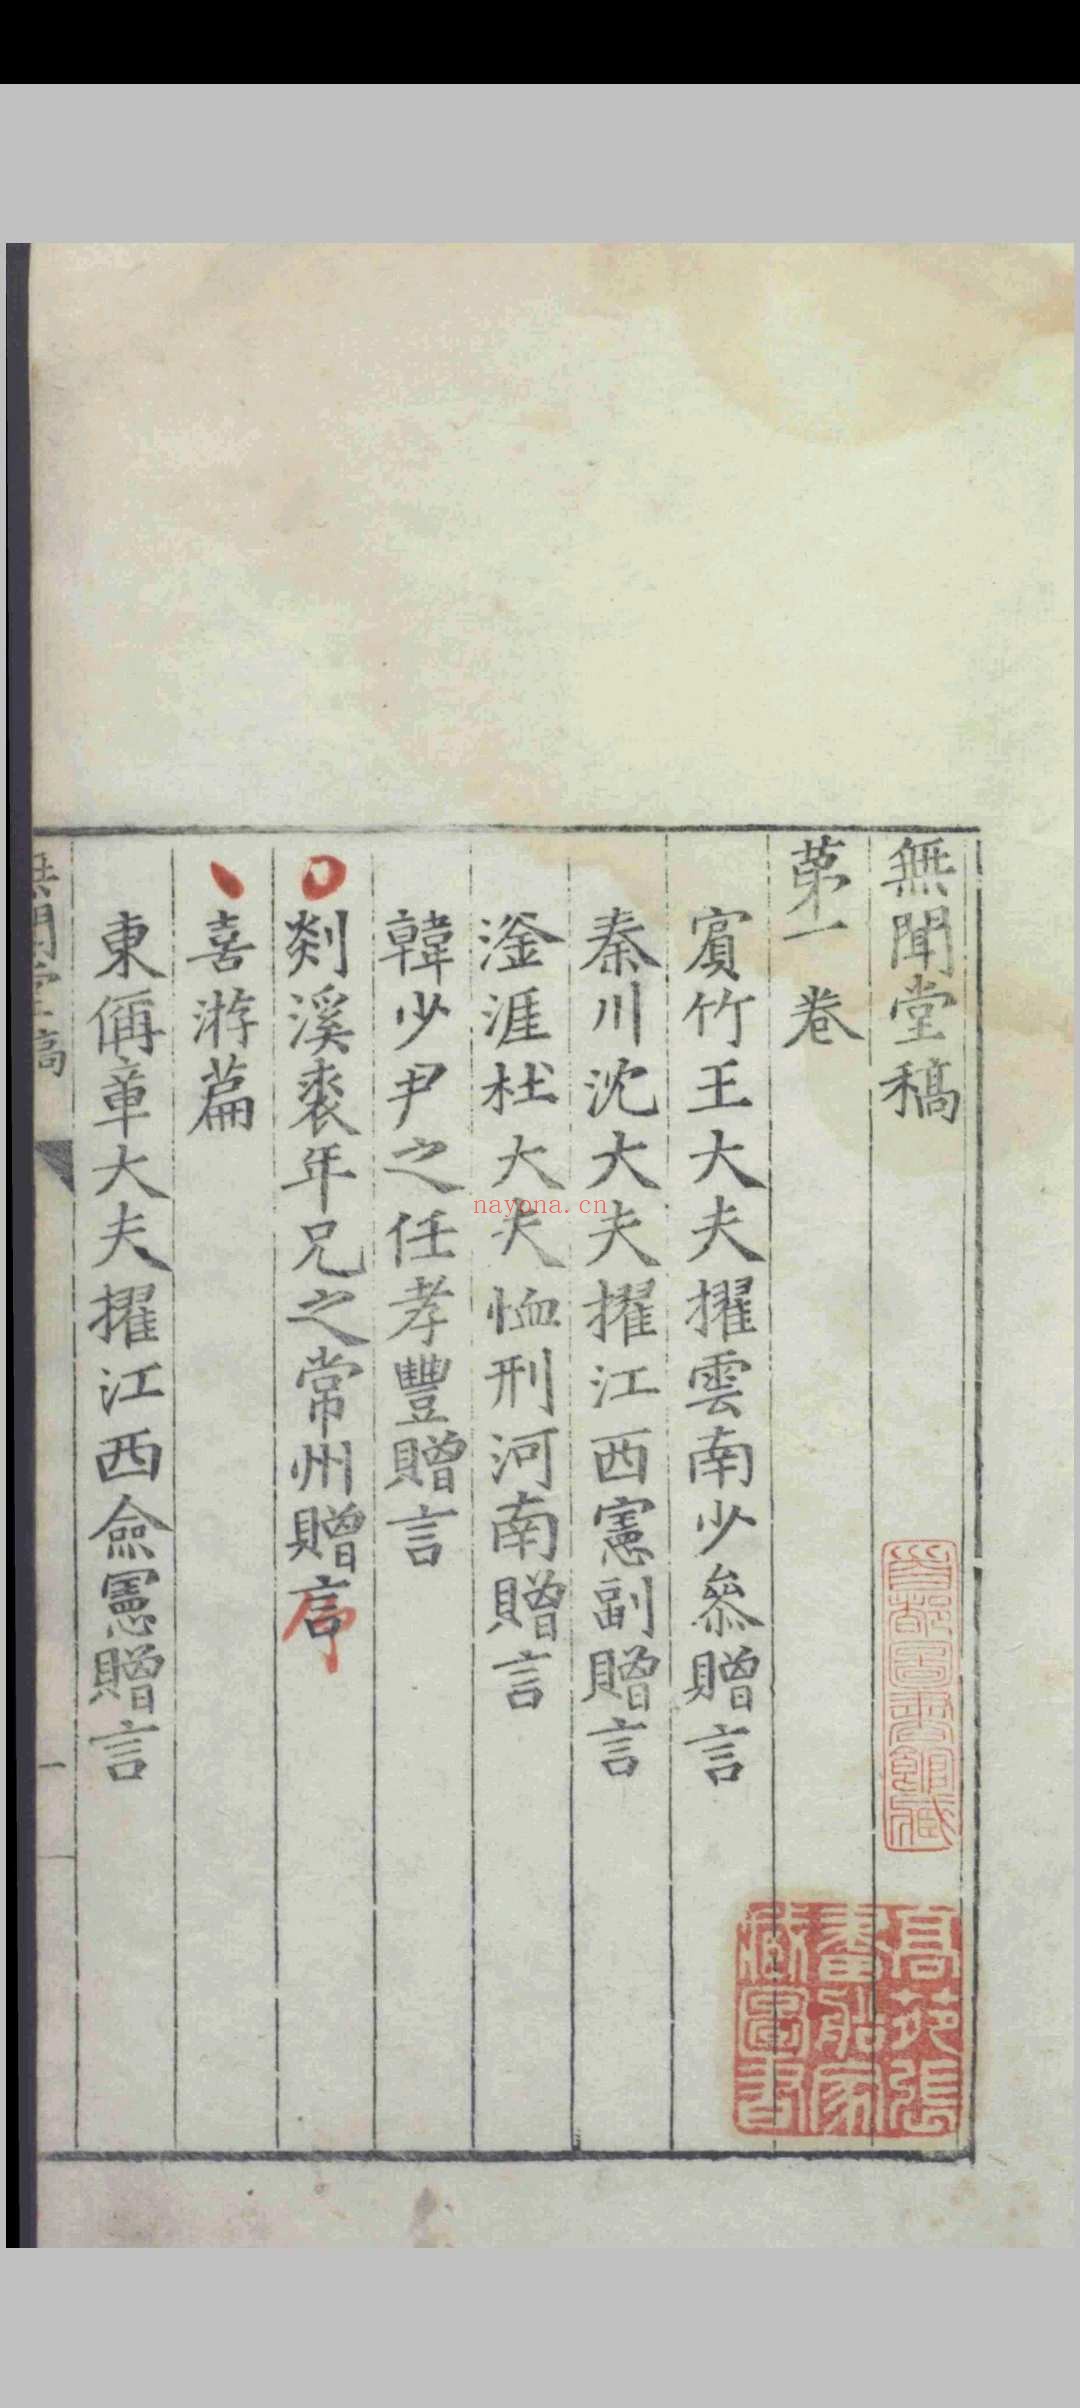 無聞堂稿
第一卷
賔竹王大夫擢雲南少叅贈言
秦川沈大夫擢江西憲副贈言
滏涯杜大夫恤刑河南贈言
韓少尹之任孝豐贈言
剡溪裘年兄之常州贈言
喜游篇
東偁章大夫擢江西僉憲贈言
無聞堂稿
一
首都圖書館藏
高苑張
藏圖書
nayona.cn